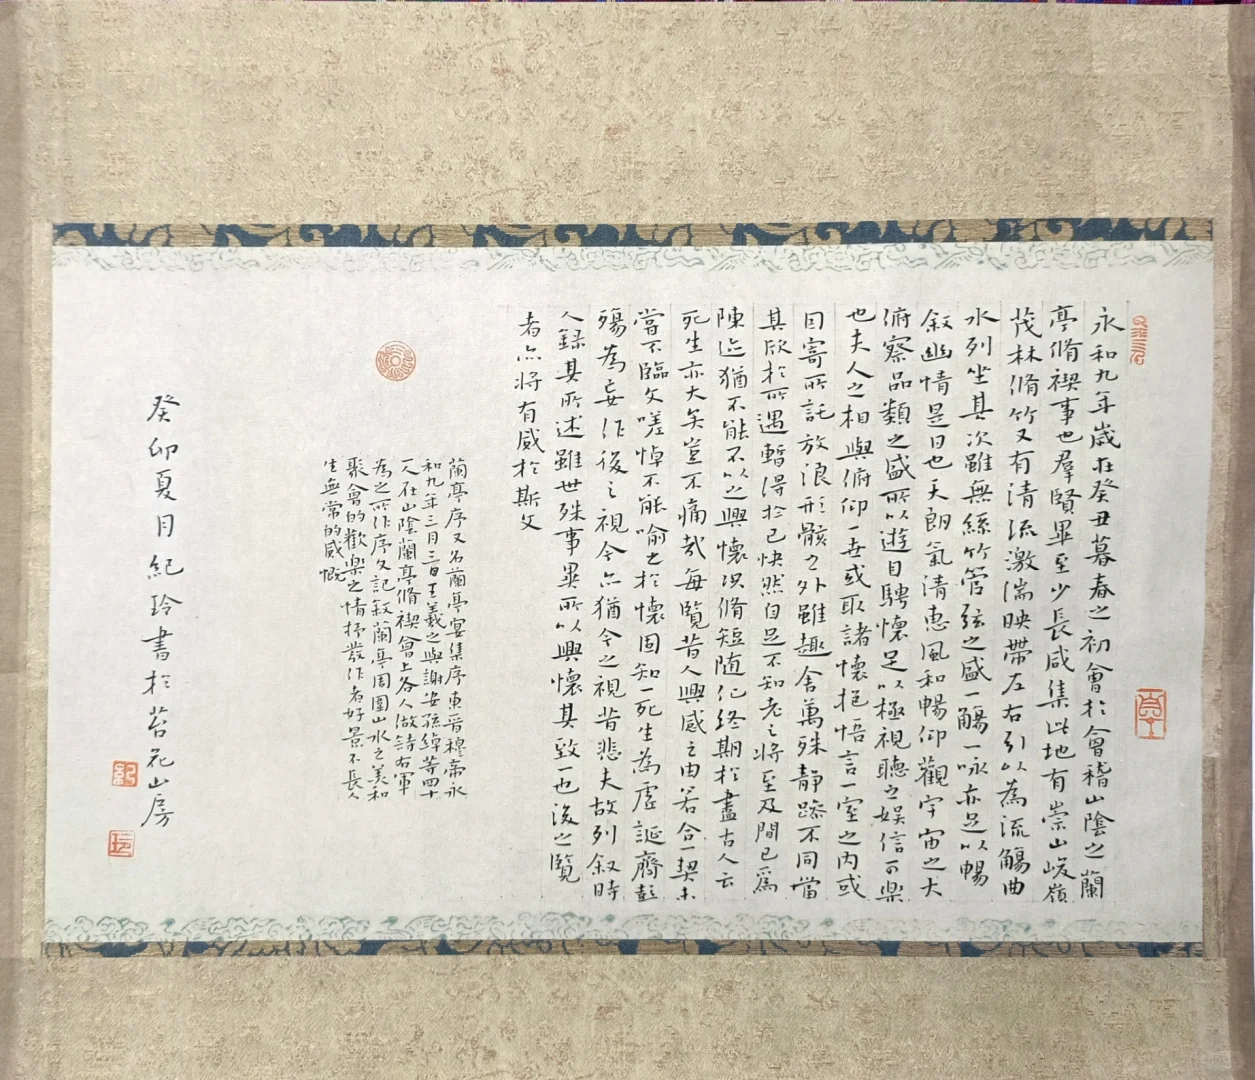 永和九年歲在癸丑暮春之初會於會稽山陰之蘭
亭脩禊事也羣賢畢至少長咸集此地有崇山峻嶺
茂林脩竹又有清流激湍映帶左右引以為流觴曲
水列坐其次雖無絲竹管弦之盛一觴一咏亦足以暢
叙幽情是日也天朗氣清惠風和暢仰觀宇宙之大
俯察品類之盛所以遊目騁懷足以極視聽之娛信可樂
也夫人之相與俯仰一世或取諸懷抱悟言一室之內或
因寄所託放浪形骸之外雖趣舍萬殊靜躁不同當
其欣於所遇暫得於己快然自足不知老之將至及
陳迹猶不能不以之興懷況脩短隨化終期於盡古人云
死生亦大矣豈不痛哉每覽昔人興感之由若合一契未
嘗不臨文嗟悼不能喻之於懷固知一死生為虛誕齊彭
殤為妄作後之視今亦猶今之視昔悲夫故列叙時
人録其所述雖世殊事異所以興懷其致一也後之覽
者亦將有感於斯文
蘭亭序又名蘭亭宴集序東晉穆帝永
和九年三月三日王羲之與謝安孫綽等四十
一人在山陰蘭亭脩禊會上各人做詩右軍
為之所作序文記叙蘭亭周圍山水之美和
聚會的歡樂之情抒發作者好景不長人
生無常的感慨
癸卯夏月紀玲書於苔花山房
紀
玲